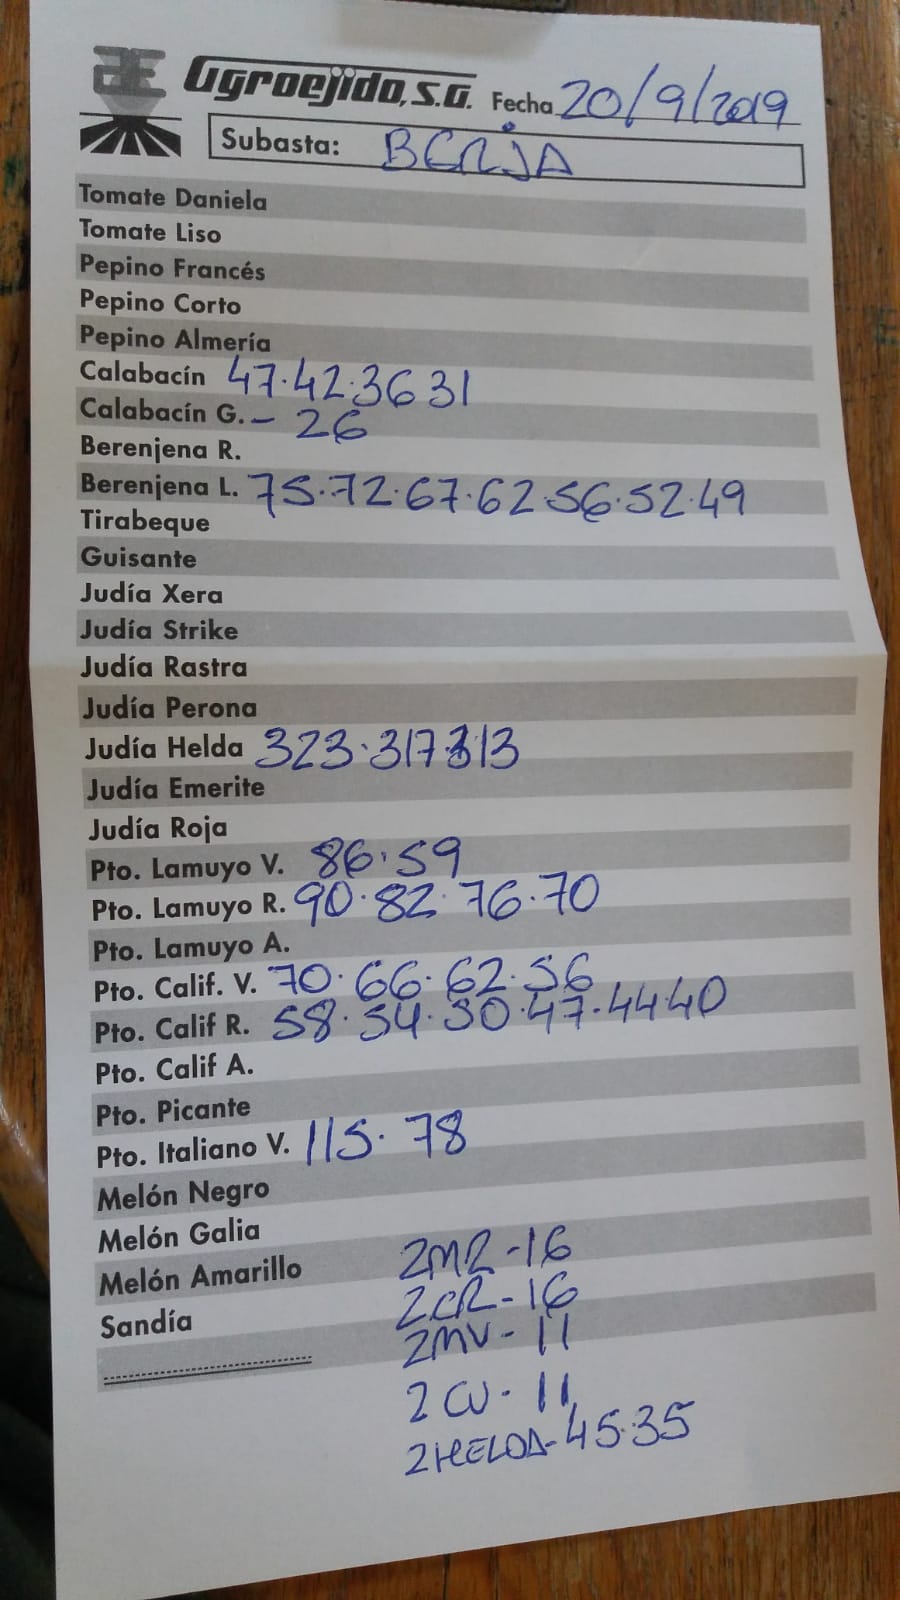 AE Agroejido, S.A. Fecha 20/9/2019
Subasta: BERJA
Tomate Daniela
Tomate Liso
Pepino Francés
Pepino Corto
Pepino Almería
Calabacín 47.42.36 31
Calabacín G. - 26
Berenjena R.
Berenjena L. 75.72.67.62 56.52.49
Tirabeque
Guisante
Judía Xera
Judía Strike
Judía Rastra
Judía Perona
Judía Helda 323.317 313
Judía Emerite
Judía Roja
Pto. Lamuyo V. 86.59
Pto. Lamuyo R. 90.82.76.70
Pto. Lamuyo A.
Pto. Calif. V. 70.66.62.56
Pto. Calif R. 58.54.50.47.44 40
Pto. Calif A.
Pto. Picante
Pto. Italiano V. 115. 78
Melón Negro
Melón Galia
Melón Amarillo
Sandía
2MR - 16
2CR - 16
2MV - 11
2CV - 11
2HELDA - 45.35